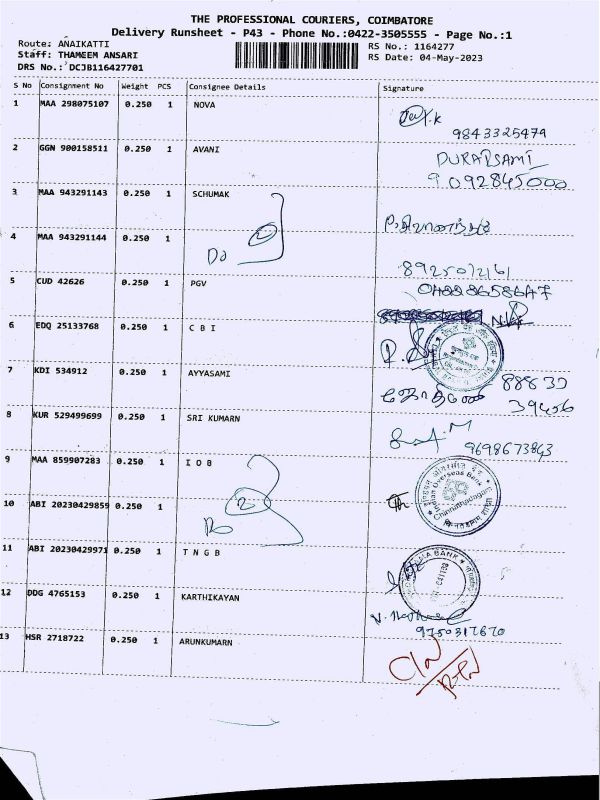 THE PROFESSIONAL COURIERS, COIMBATORE
Delivery Runsheet - P43 - Phone No.:0422-3505555 - Page No.:1
Route: ANAIKATTI
Staff: THAMEEM ANSARI
DRS No.: DCJB116427701
RS No.: 1164277
RS Date: 04-May-2023
S No Consignment No Weight PCS Consignee Details Signature
1 MAA 298075107 0.250 1 NOVA
9843325479
2 GGN 900158511 0.250 1 AVANI
DURAISAMI
9092845000
3 MAA 943291143 0.250 1 SCHUMAK
4 MAA 943291144 0.250 1
Do 2
8925072161
5 CUD 42626 0.250 1 PGV
6 EDQ 25133768 0.250 1 C B I
7 KDI 534912 0.250 1 AYYASAMI
88832
39456
8 KUR 529499699 0.250 1 SRI KUMARN
9698673843
9 MAA 859907283 0.250 1 I O B
Indian Overseas Bank
Chinnathadagam
10 ABI 20230429859 0.250 1
Do 2
11 ABI 20230429971 0.250 1 T N G B
BANK
12 DDG 4765153 0.250 1 KARTHIKAYAN
9750317670
13 HSR 2718722 0.250 1 ARUNKUMARN